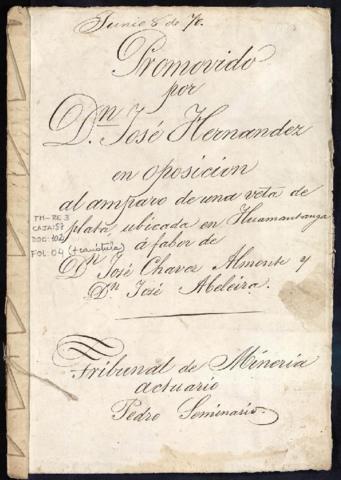 Junio 8 de 70.
Promovido
por
Dn. José Hernandez
en oposicion
al amparo de una veta de
plata ubicada en Huamantanga
á fabor de
Dn José Chavez Almonte y
Dn José Abeleira.
TM-RE 3
CAJA: 57
DOC: 102
FOL: 04 (+carátula)
Tribunal de Mineria
actuario
Pedro Seminario.